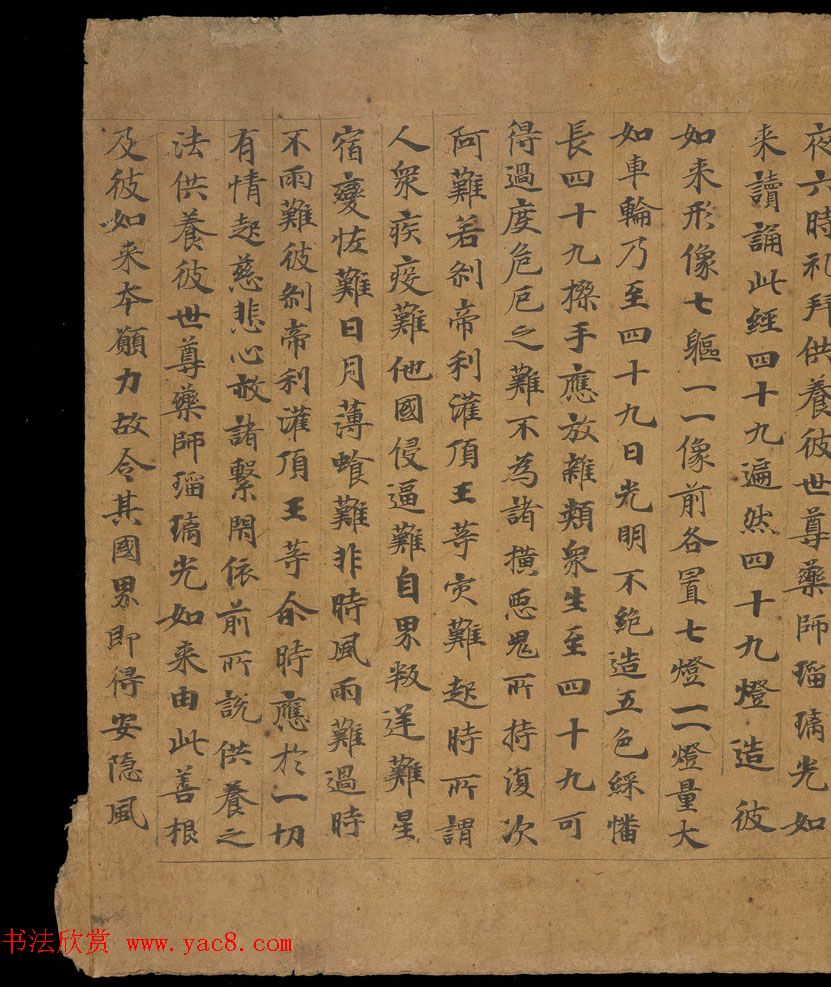 夜六時礼拜供養彼世尊藥師瑠璃光如
来讀誦此經四十九遍然四十九燈造彼
如来形像七軀一一像前各置七燈一一燈量大
如車輪乃至四十九日光明不絶造五色綵幡
長四十九搩手應放雜類衆生至四十九可
得過度危厄之難不為諸橫惡鬼所持復次
阿難若刹帝利灌頂王等灾難起時所謂
人衆疾疫難他國侵逼難自界叛逆難星
宿變恠難日月薄蝕難非時風雨難過時
不雨難彼刹帝利灌頂王等尒時應於一切
有情起慈悲心赦諸繫閇依前所說供養之
法供養彼世尊藥師瑠璃光如来由此善根
及彼如来本願力故令其國界即得安隱風
书法欣赏 www.yac8.com